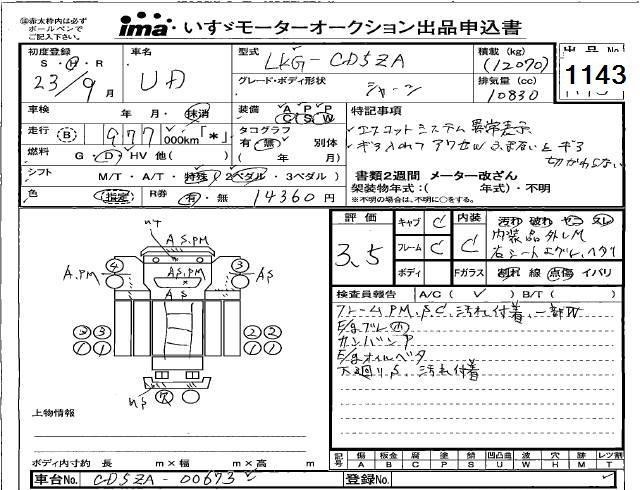 ㊟赤太枠内は必ず
ボールペンで
ご記入下さい。
ima いすゞモーターオークション出品申込書
初度登録 車名 型式 LKG-CD5ZA 積載 (kg) 出品No.
S・H・R (12070) 1143
23/9月 UD グレード・ボディ形状 シャーシ 排気量 (cc)
10830
車検 年・月・抹消 装備 A P P 特記事項
C S W
走行 (B) 977 000km「*」 タコグラフ エスコットシステム 異常表示
有・無 別体 ギヤ入れて アクセル
燃料 G・D・HV 他( ) ( 年 月) 切りかわらない
シフト M/T・A/T・特殊(2ペダル・3ペダル) 書類2週間 メーター改ざん
架装物年式:( 年式)・不明
色 指定 R券 有・無 14360円 ※不明の場合は、不明に○をする。
評価 キャブ C 内装 汚れ 破れ
3.5 フレーム C C 内装品外しM
右シートエグレ、ヘタリ
ボディ Fガラス 割れ 線 点傷 イバリ
検査員報告 A/C( ✓ ) B/T( )
フレームPM、SC、汚れ付着、一部W
E/gブレ㊥
カンバンア
E/gオイルベタ
下廻りS、汚れ付着
uT
AS,PM
A,PM ④ ASPM ③ AS
AS
② ③ ② ②
① ① ① ①
us
上物情報
ボディ内寸約 長 m×幅 m×高 m
記号 傷 板金 腐 塗 錆 凹凸曲 波 穴 跡 レツ割
A B C P S U W H M T
車台No. CD5ZA-00673 登録No.